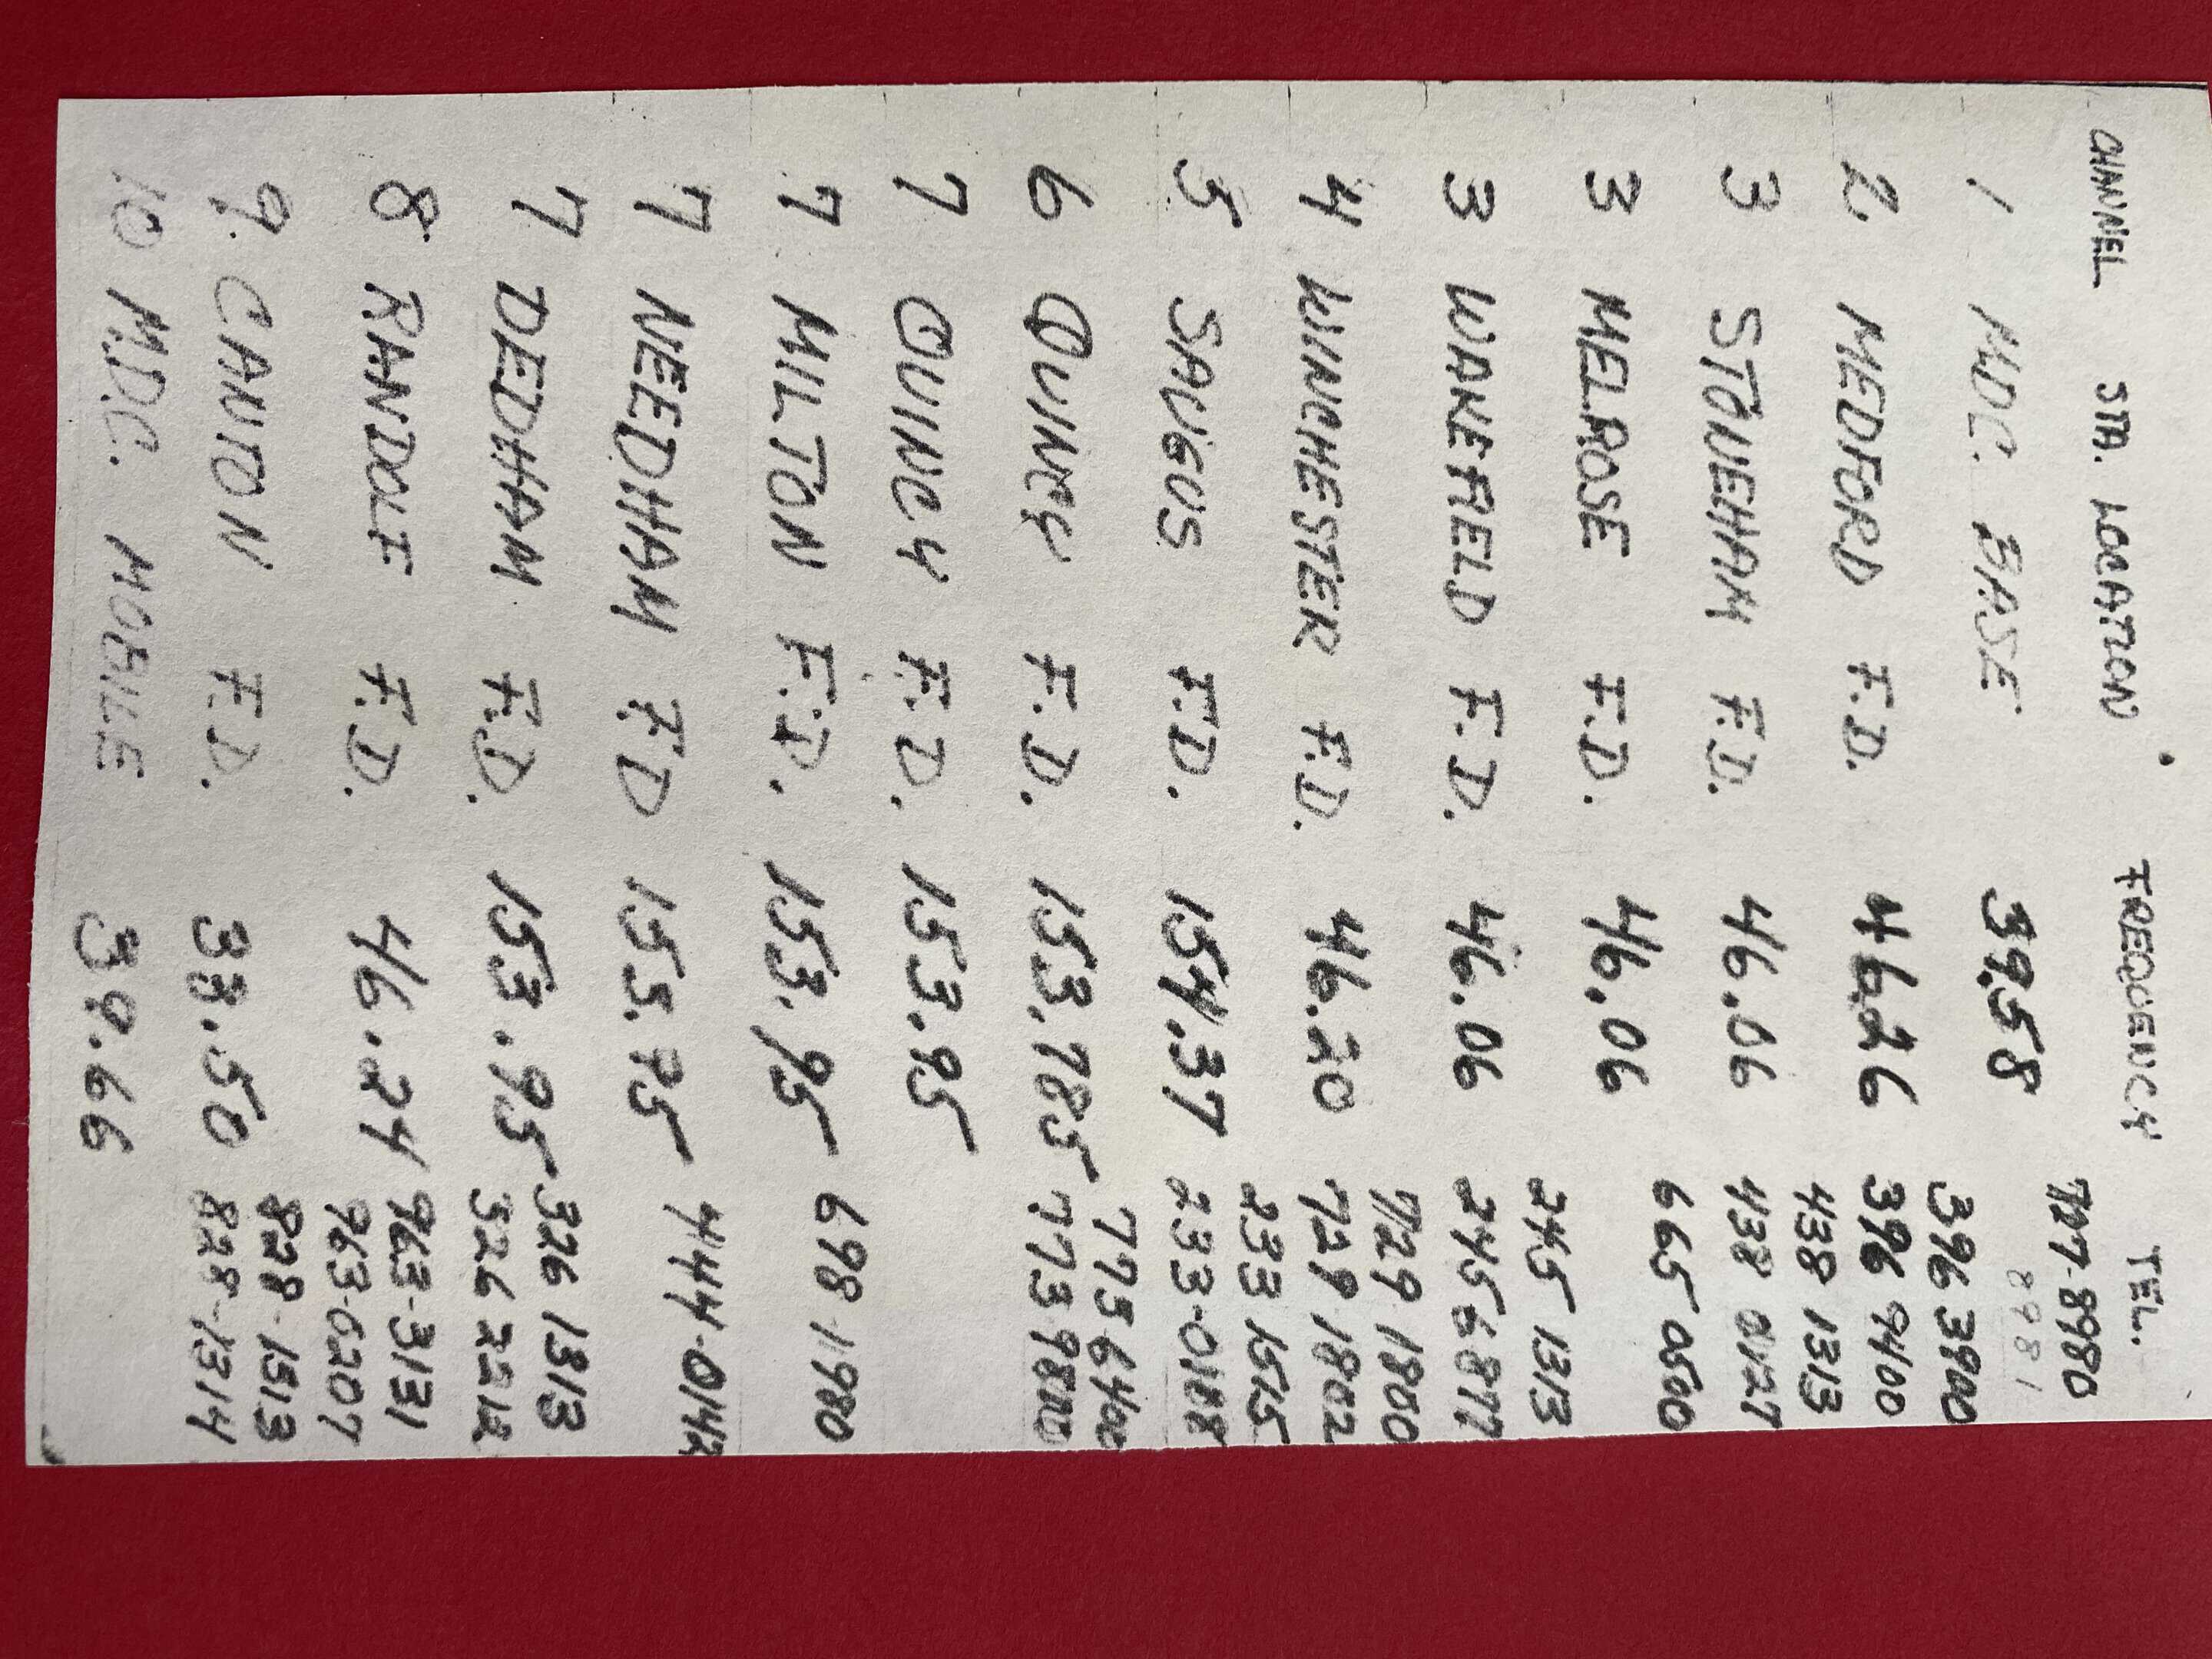 CHANNEL STA. LOCATION FREQUENCY TEL.
727-8980
1 MDC. BASE 39.58 8981
396 3900
2 MEDFORD F.D. 46.26 396 9400
438 1313
3 STONEHAM F.D. 46.06 438 0127
3 MELROSE F.D. 46.06 665 0500
245 1313
3 WAKEFIELD F.D. 46.06 245 6877
729 1800
4 WINCHESTER F.D. 46.20 729 1802
233 1515
5 SAUGUS F.D. 154.37 233-0188
775 6400
6 QUINCY F.D. 153.785 773 9800
7 QUINCY F.D. 153.95
7 MILTON F.D. 153.95 698-1980
7 NEEDHAM F.D 153.95 444-0142
326 1313
7 DEDHAM F.D. 153.95 326 2212
963-3131
8 RANDOLF F.D. 46.24 963-0207
828-1313
9. CANTON F.D. 33.50 828-1314
10 M.D.C. MOBILE 39.66